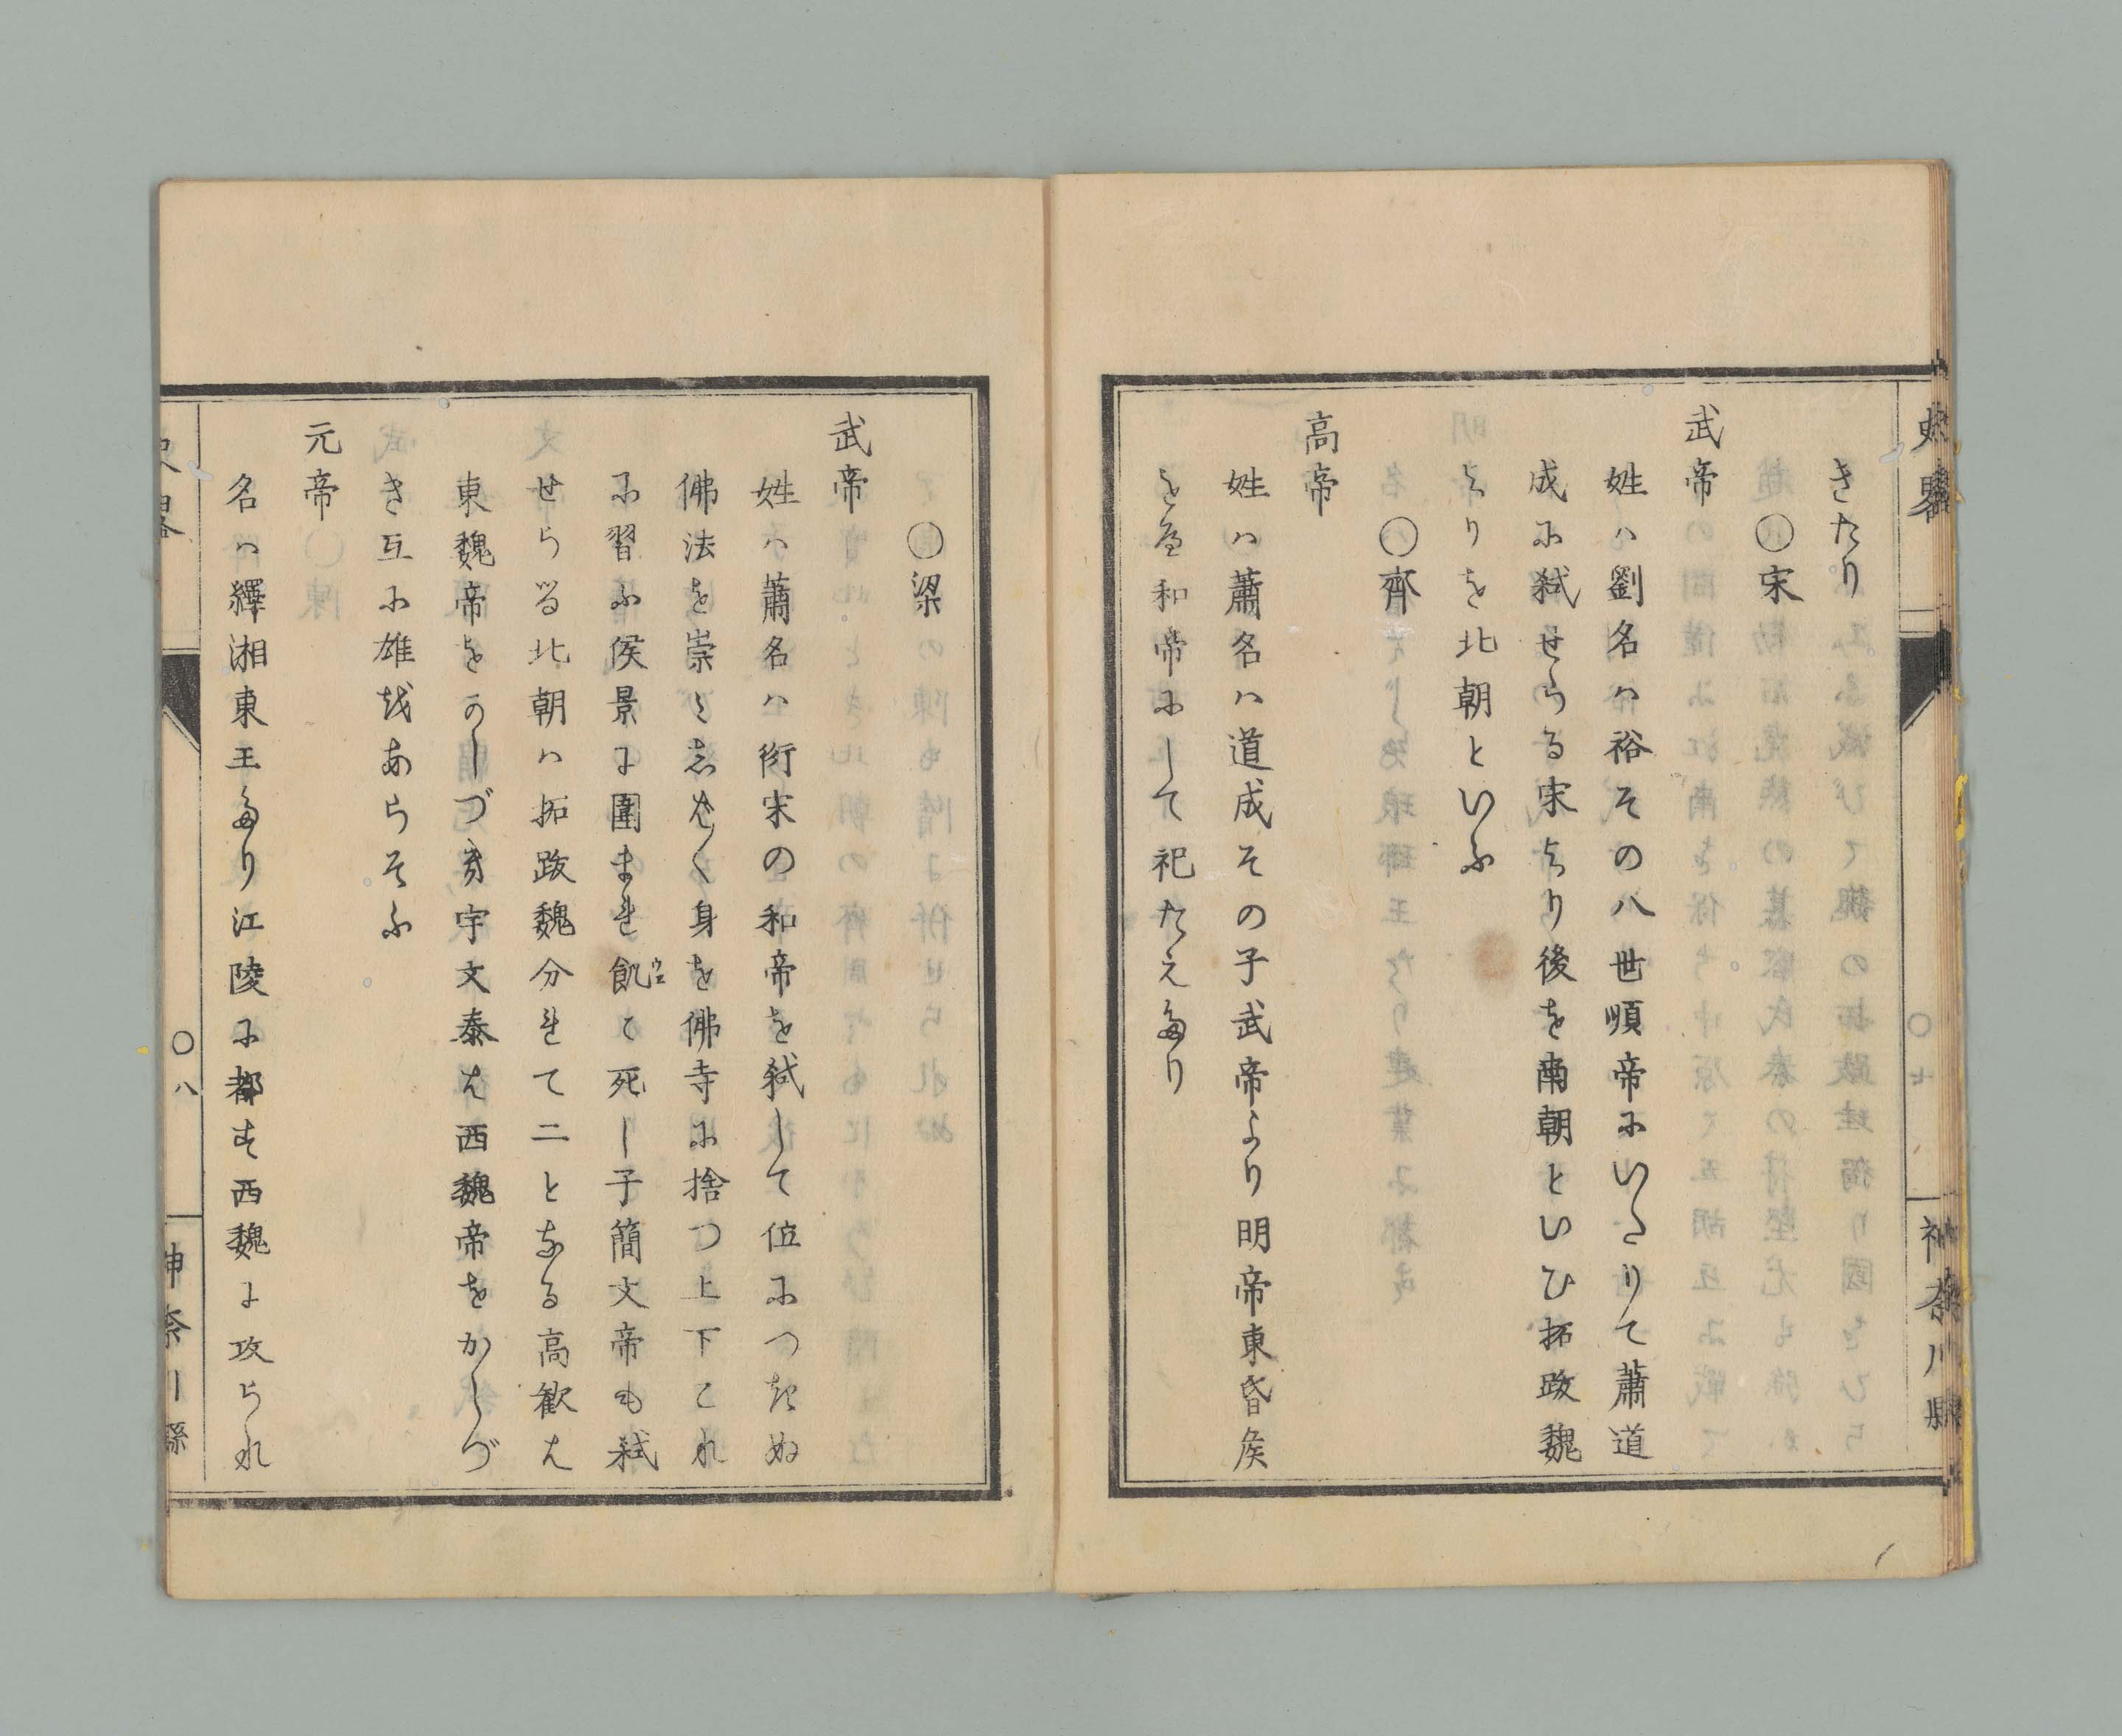 史畧
〇七
神奈川縣
きたり
〇宋
武帝
姓ハ劉名ハ裕その八世順帝にいたりて蕭道
成に弑せらる宋より後を南朝といひ拓跋魏
よりを北朝といふ
〇齊
高帝
姓ハ蕭名ハ道成その子武帝より明帝東昏侯
を歴和帝にして祀たえたり
〇梁
武帝
姓ハ蕭名ハ衍宋の和帝を弑して位につきぬ
佛法を崇ミ志ば〱身を佛寺に捨つ上下これ
に習ふ侯景に圍まれ飢て死し子簡文帝も弑
ウエ
せらる北朝ハ拓跋魏分れて二となる高歓は
東魏帝をかしづき宇文泰は西魏帝をかしづ
き互に雄をあらそふ
元帝
名ハ繹湘東王たり江陵に都す西魏に攻られ
史畧
〇八
神奈川縣